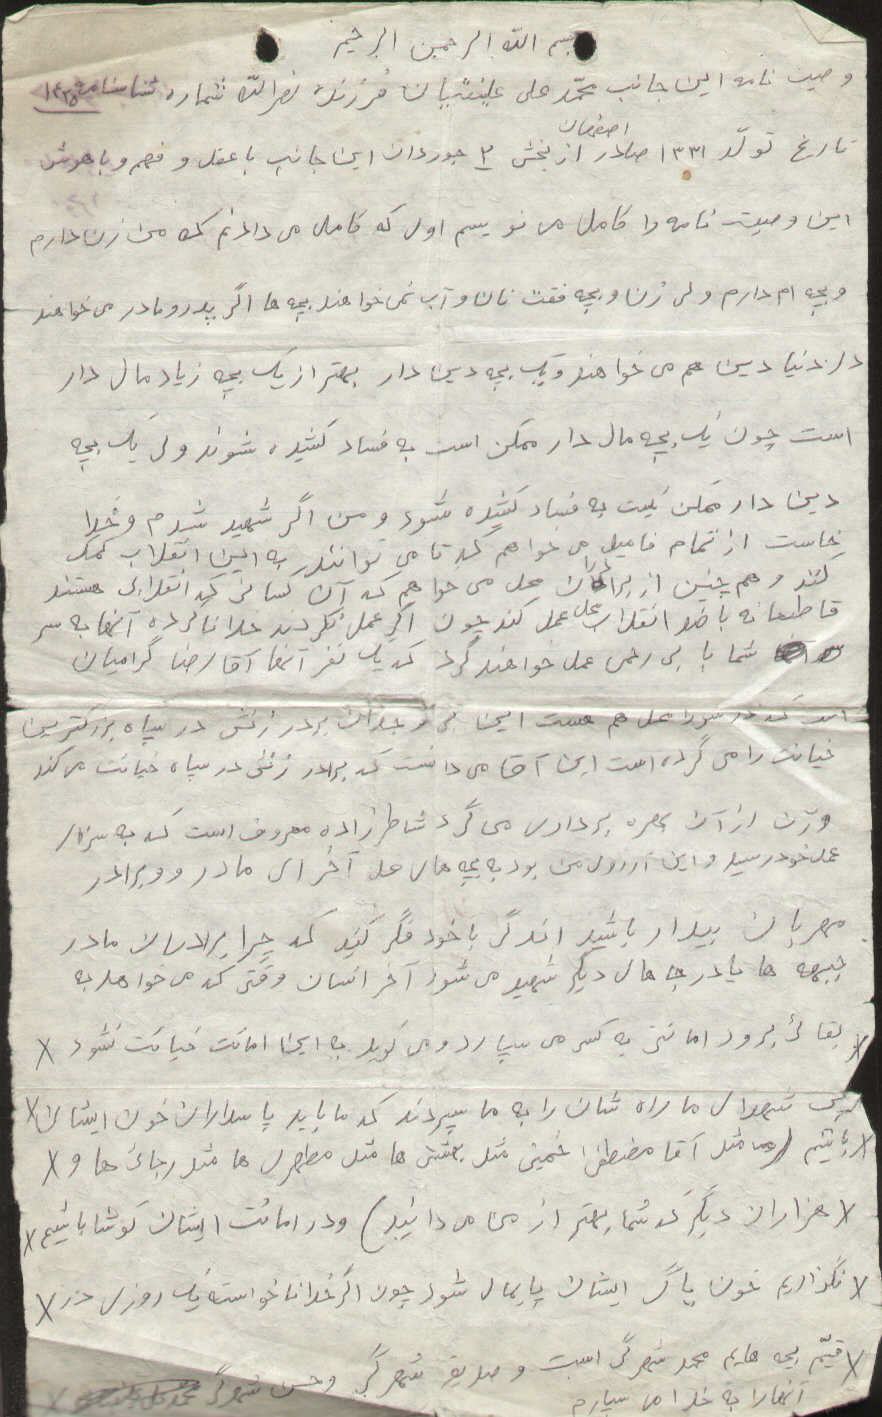 بسم الله الرحمن الرحیم
وصیت نامه این جانب محمّد علی علینقیان فرزند نصرالله شماره شناسنامه
تاریخ تولّد ۱۳۳۱ صادر از بخش ۲ اصفهان جوردان این جانب با عقل و فهم و با هوش
این وصیت نامه را کامل می نویسم اول که کامل می دادنم که من زن دارم
و بچه ام دارم ولی زن و بچه فقت نان و آب نمی خواهند بچه ها اگر پدر و مادر می خواهند
در دنیا دین هم می خواهند و یک بچه دین دار بهتر از یک بچه زیاد مال دار
است چون یک بچه مال دار ممکن است به فساد کشیده شوند ولی یک بچه
دین دار ممکن نیست به فساد کشیده شود و من اگر شهید شدم و خدا
خاست از تمام فامیل می خواهم که تا می توانند به این انقلاب کمک
کنند و هم چنین از برادران محل می خواهم که آن کسانی که انقلابی هستند
قاطعانه با ضد انقلاب محل عمل کند چون اگر عمل نکردند خدا نا کرده آنها به سر
شما با بی رحمی عمل خواهند کرد که یک نفر آنها آقا رضا گرامیان
است که در سورا محل هم هست این بی وجدان برادر زنش در سپاه بزرگترین
خیانت را می کرده است این آقا می دانست که برادر زنش در سپاه خیانت می کند
و از آن بهره برداری می کرد شاطر زاده معروف است که به سزای
عمل خود رسید و این آرزوی من بود به بچه های محل آخر ای مادر و برادر
مهربان بیدار باشید اندکی با خود فکر کنید که چرا برادران ما در
جبهه ها یا در جا های دیگر شهید می شود آخر انسان وقتی که می خواهد به
بقائی برود امانتی به کسی می سپارد و می گوید به این امانت خیانت نشود X
پس شهدای ما راه شان را به ما سپردند که ما باید پاسداران خون ایشان X
X باشیم (مثل آقا مصطفی خمینی مثل بهشتی ها مثل مطهری ها مثل رجائی ها و X
X هزاران دیگر که شما بهتر از من می دانید) و در امانت ایشان کوشا باشیم X
X نگذاریم خون پاک ایشان پایمال شود چون اگر خدا نا خواسته یک روزی در X
X قیّم بچه هایم محمد شهرکی است و صدیقه شهرکی و حسن شهرکی
آنها را به خدا می سپارم